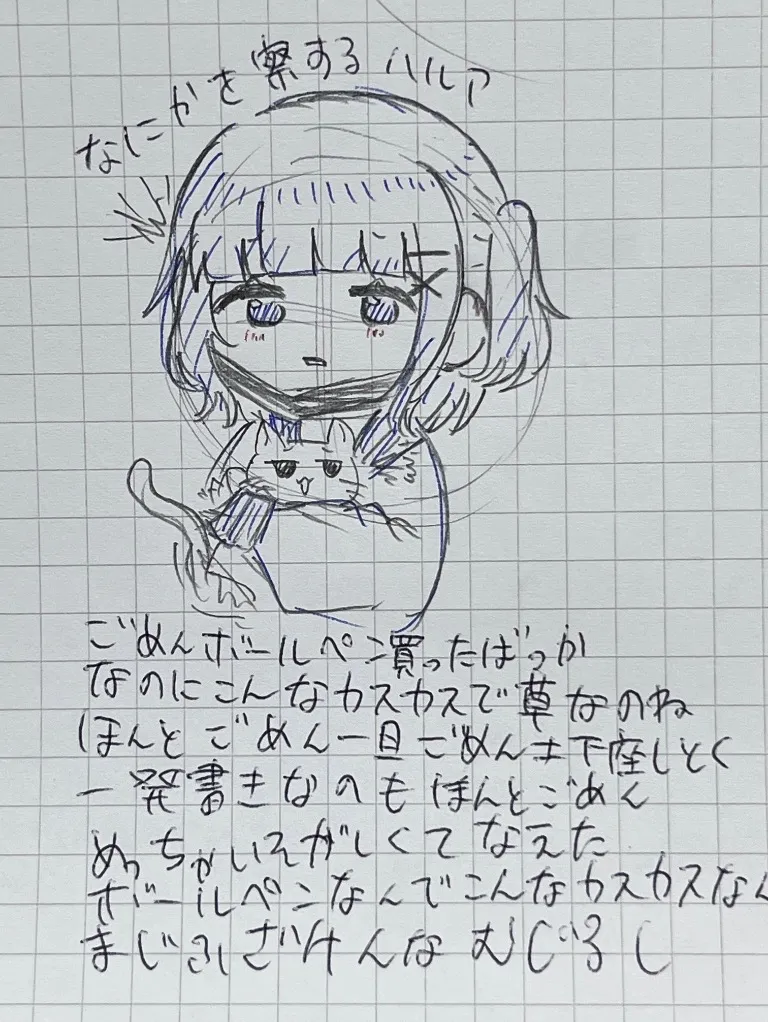 なにかを察するハルア
ごめんボールペン買ったばっか
なのにこんなカスカスで草なのね
ほんとごめん一旦ごめん土下座しとく
一発書きなのもほんとごめん
めっちゃいそがしくてなえた
ボールペンなんでこんなカスカスなん
まじふざけんなむじるし